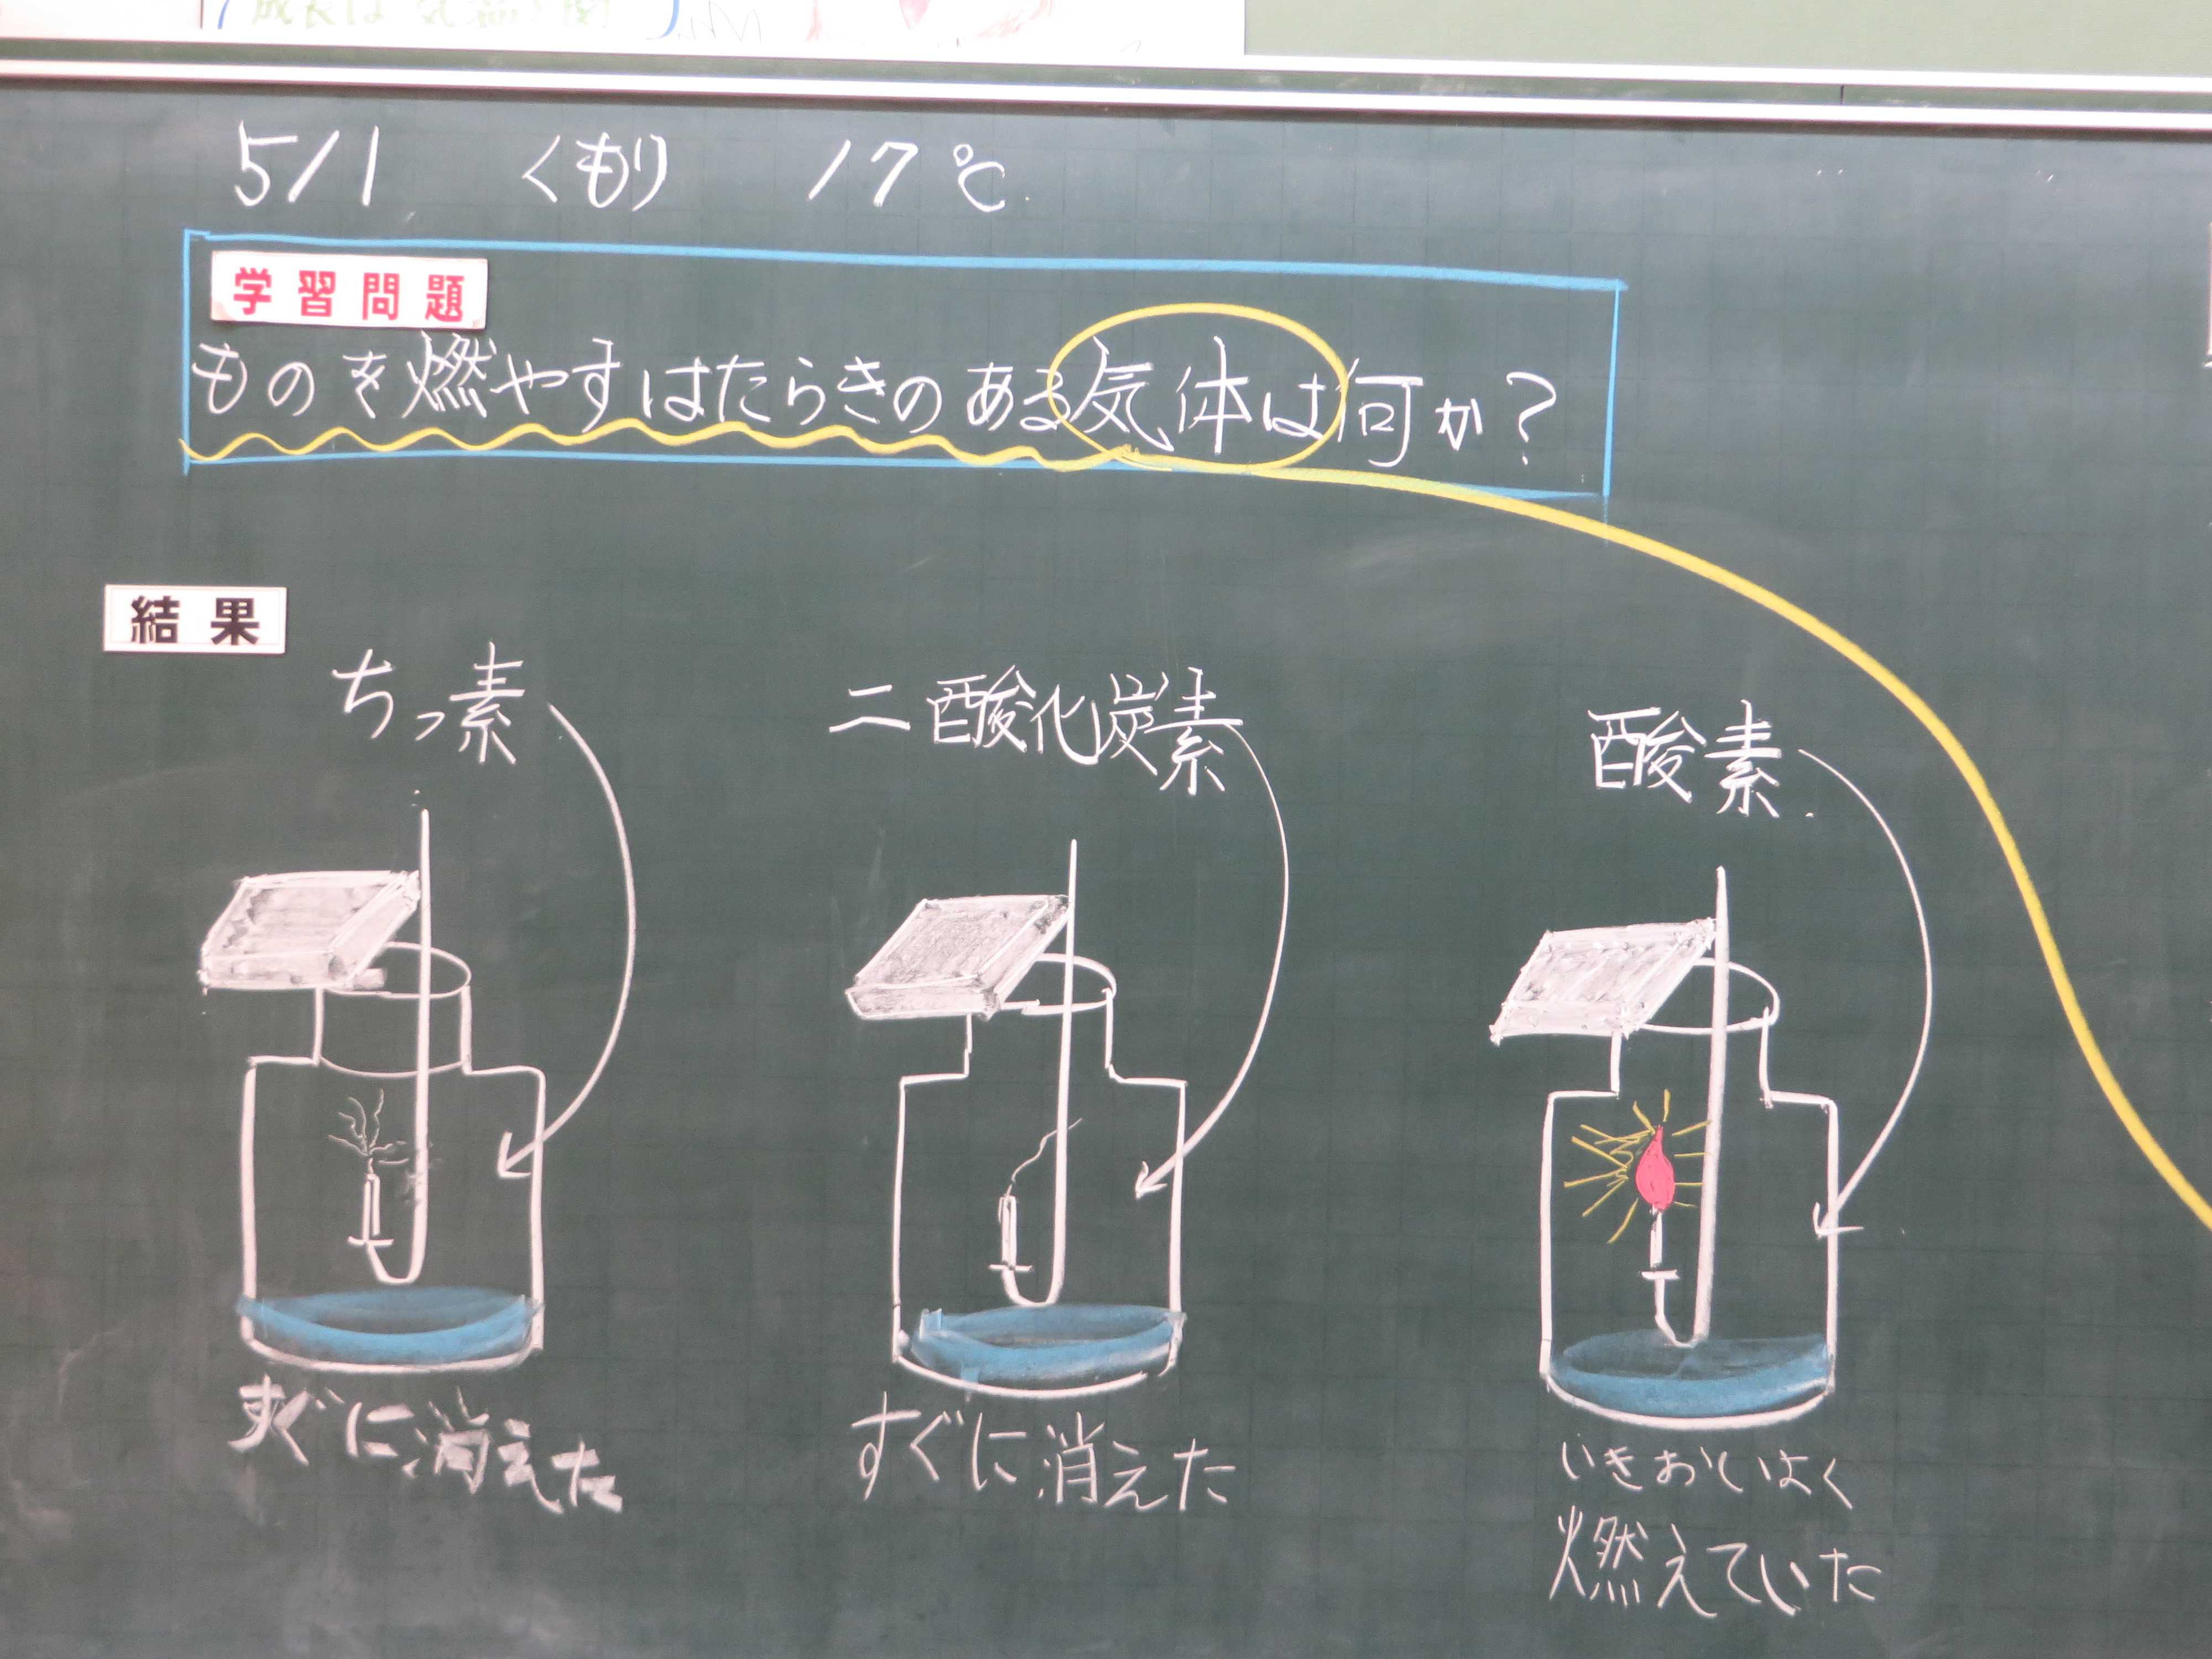 成長は気温と関
5/1 くもり 17℃
学習問題
ものを燃やすはたらきのある気体は何か?
結果
ちっ素 二酸化炭素 酸素
すぐに消えた すぐに消えた いきおいよく
燃えていた